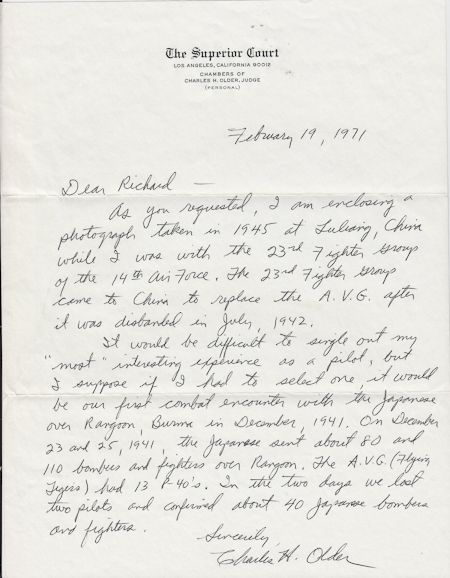 The Superior Court
LOS ANGELES, CALIFORNIA 90012
CHAMBERS OF
CHARLES H. OLDER, JUDGE
(PERSONAL)
February 19, 1971
Dear Richard —
As you requested, I am enclosing a
photograph taken in 1945 at Luliang, China
while I was with the 23rd Fighter Group
of the 14th Air Force. The 23rd Fighter Group
came to China to replace the A.V.G. after
it was disbanded in July, 1942.
It would be difficult to single out my
"most" interesting experience as a pilot, but
I suppose if I had to select one, it would
be our first combat encounter with the Japanese
over Rangoon, Burma in December, 1941. On December
23 and 25, 1941, the Japanese sent about 80 and
110 bombers and fighters over Rangoon. The A.V.G. (Flying
Tigers) had 13 P-40's. In the two days we lost
two pilots and confirmed about 40 Japanese bombers
and fighters.
Sincerely,
Charles H. Older